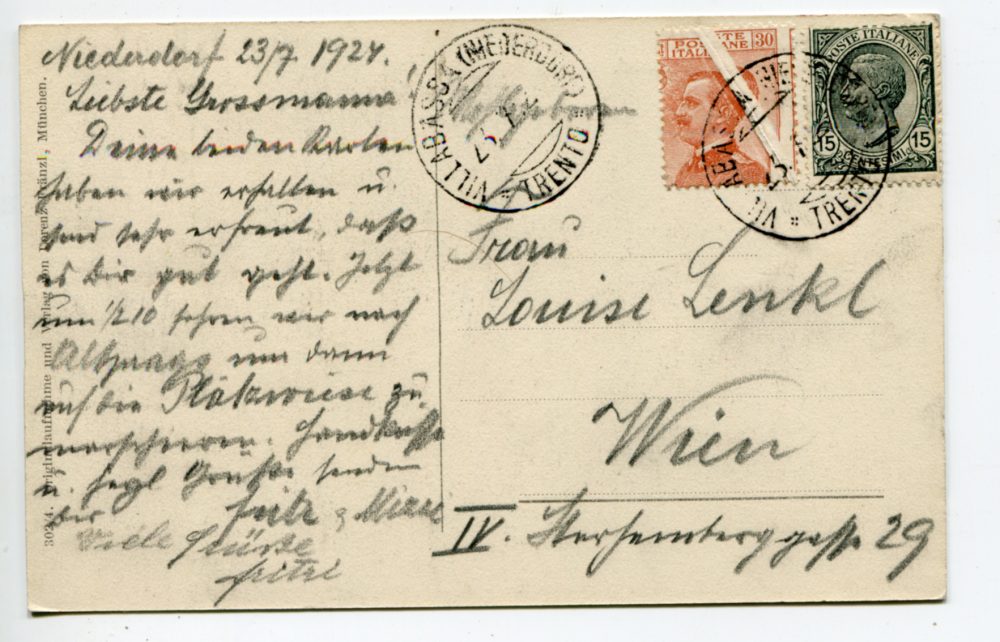 Niederdorf 23/7 1924.
Liebste Grossmama!
Deine beiden Karten
haben wir erhalten u.
sind sehr erfreut, daß
es Dir gut geht. Jetzt
um 1/2 10 fahren wir nach
Altprags um dann
auf die Plätzwiese zu
marschieren. Handküsse
u. herzl Grüße senden
dir Fritz & Mizzi
Viele Grüsse
Fritzi
30234. Originalaufnahme und Verlag von Lorenz Fränzl, München.
VILLABASSA (NIEDERDORF)
23.7
TRENTO
POSTE ITALIANE 30
POSTE ITALIANE
15 CENTESIMI 15
VILLABASSA (NIE
23
TRENTO
Frau
Louise Lenkl
Wien
IV. Starhemberggasse 29